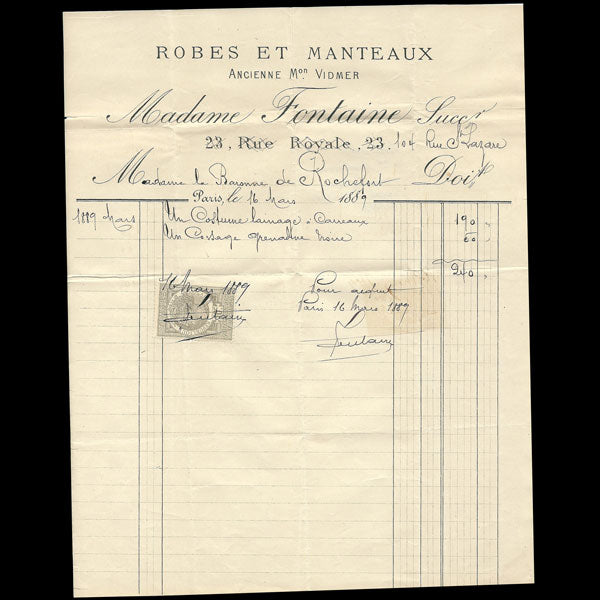 ROBES ET MANTEAUX
ANCIENNE Mon VIDMER
Madame Fontaine Succr
23, Rue Royale, 23, 104 Rue St Lazare
Madame la Baronne de Rochefort Doit
Paris, le 16 Mars 1889
1889 Mars Un Costume lainage à Carreaux 190 "
Un Corsage grenadine Noire 50 "
240 "
16 Mars 1889 Pour acquit
Fontaine Paris 16 Mars 1889
Fontaine